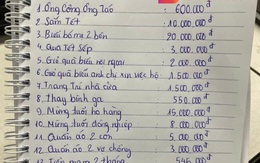 1. Ông Công Ông Táo → 600.000đ
2. Sắm Tết → 10.000.000đ
3. Biếu bố mẹ 2 bên → 20.000.000đ
4. Quà Tết Sếp → 3.000.000đ
5. Giỏ quà biếu nội ngoại → 2.000.000đ
6. Giỏ quà biếu anh chị xin việc hộ → 1.500.000đ
7. Trang Trí nhà cửa → 1.500.000đ
8. Thay bình ga → 550.000đ
9. Mừng tuổi họ hàng → 15.000.000đ
10. Mừng tuổi đồng nghiệp → 8.000.000đ
11. Quần áo 2 con → 5.000.000đ
12. Quần áo 2 vợ chồng → 3.000.000đ